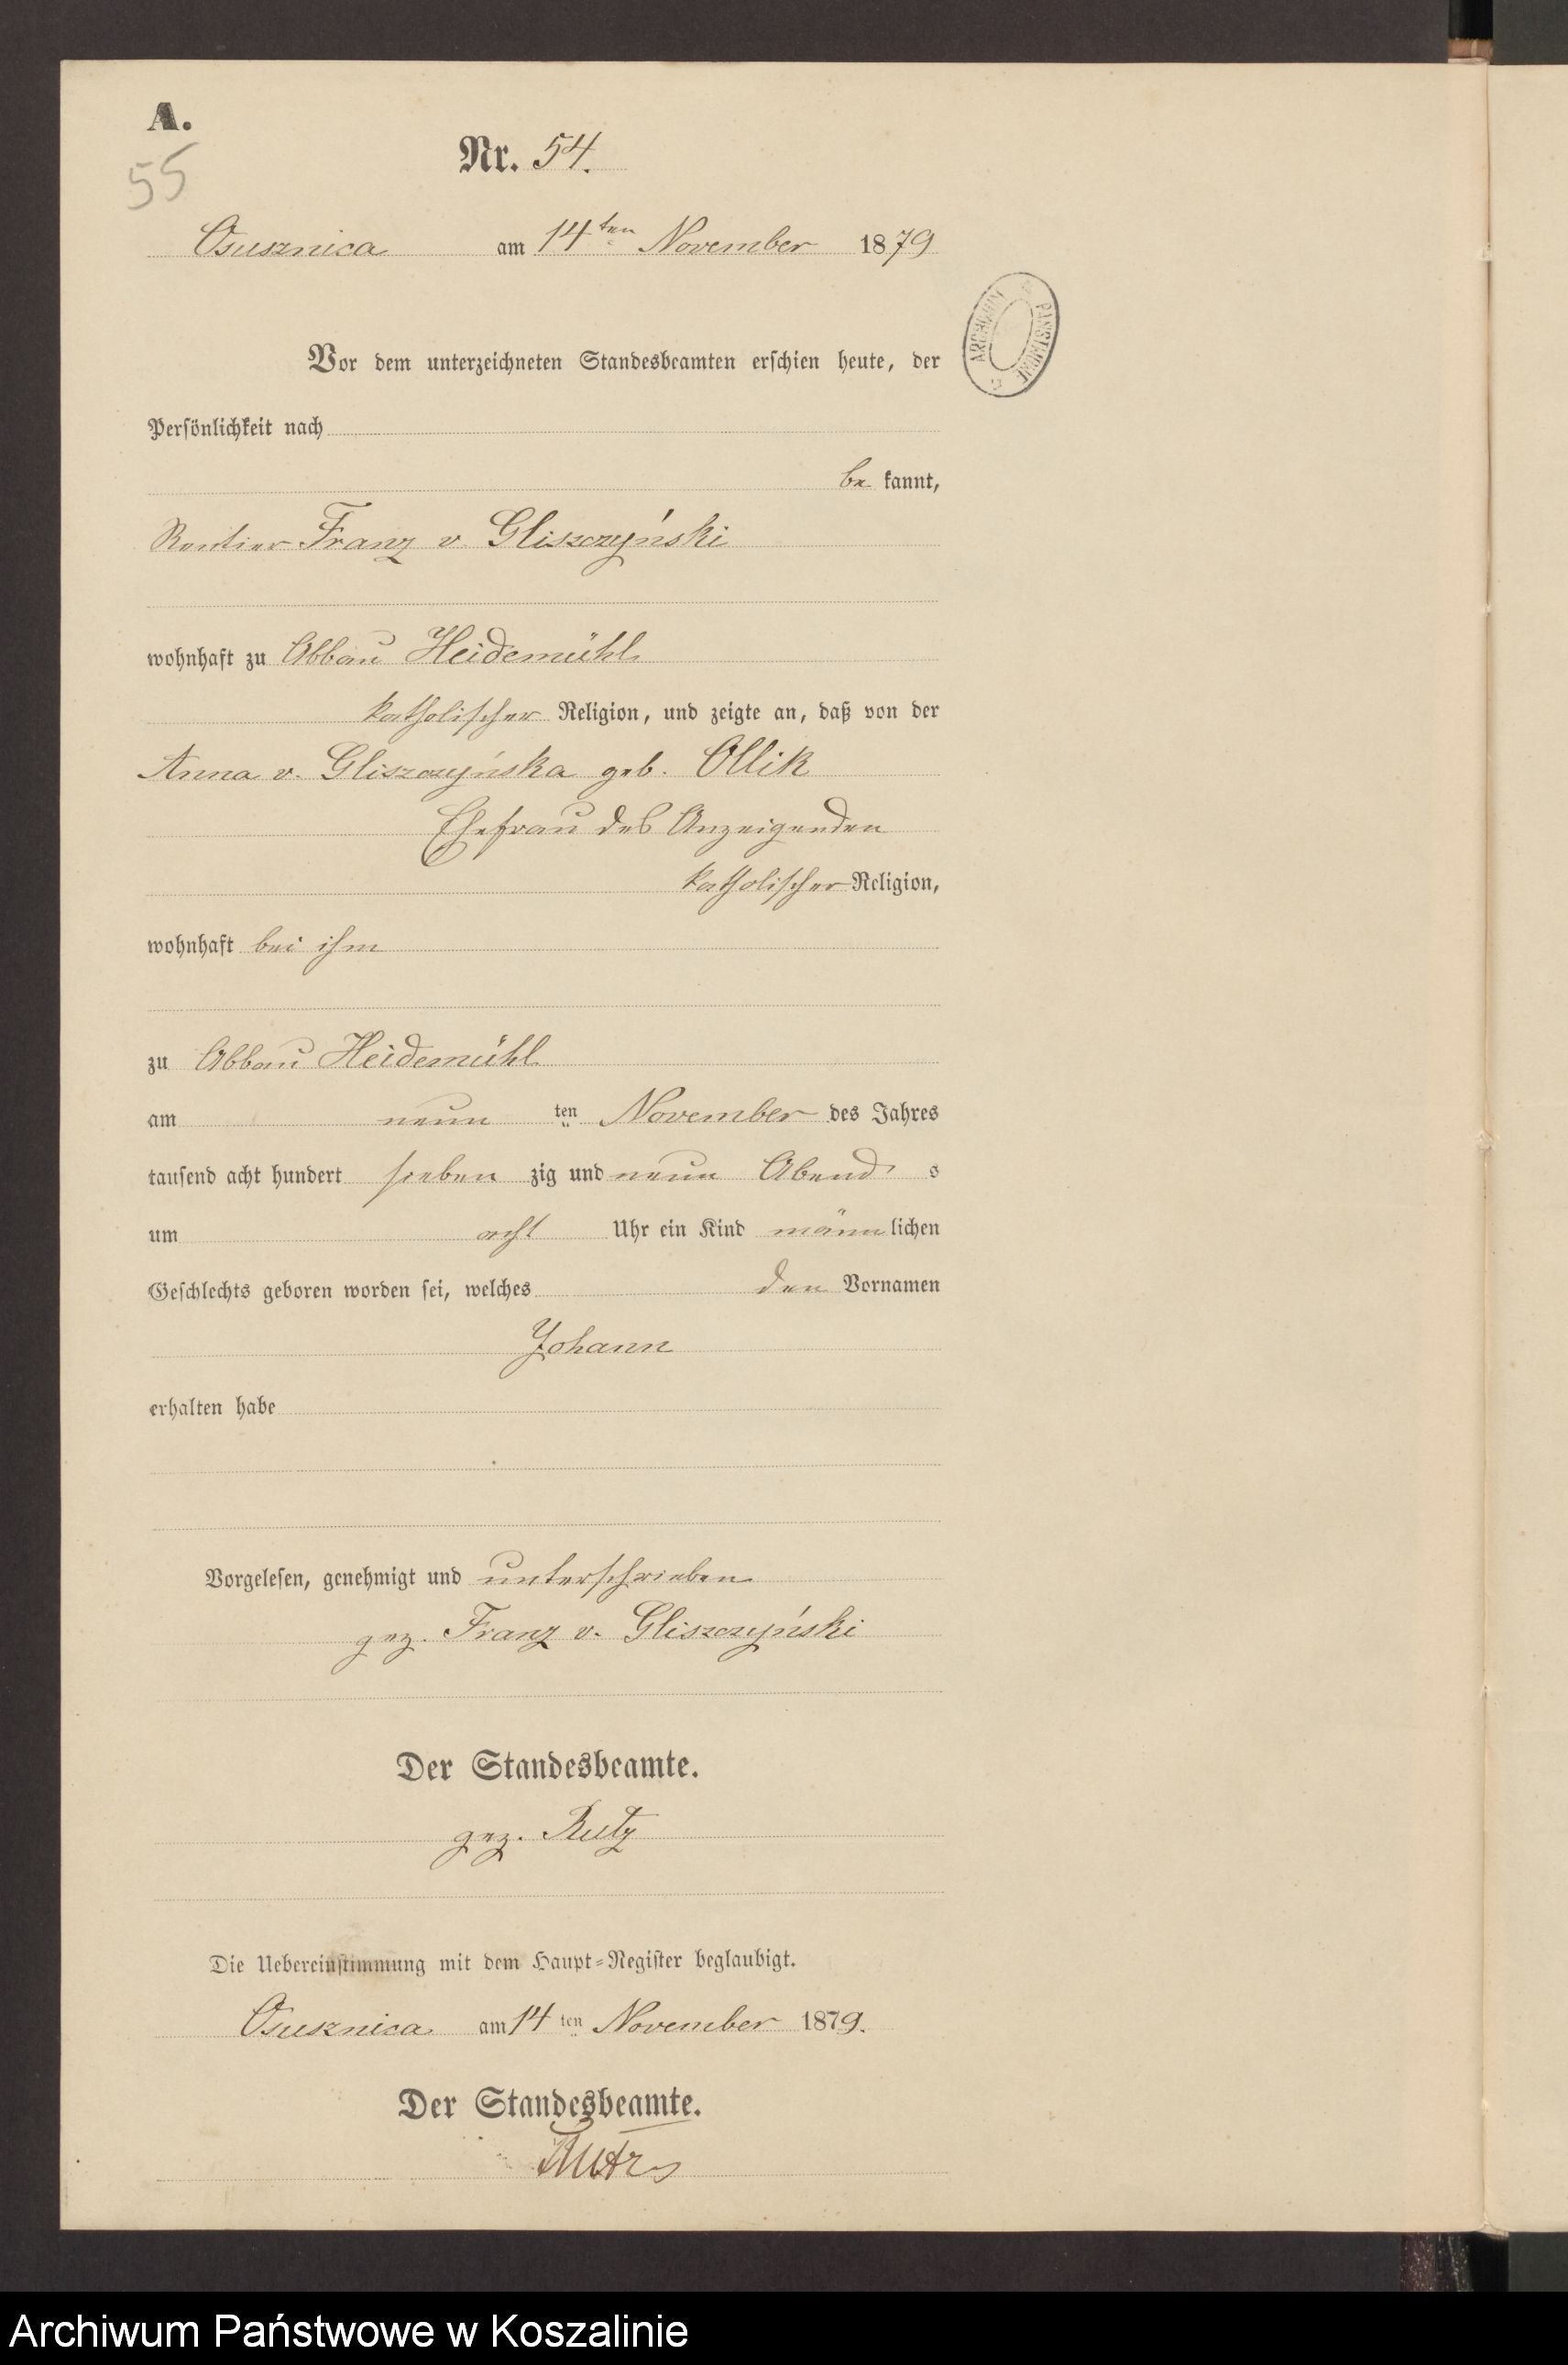 A.
55
Nr. 54.
Osusznica am 14ten November 1879
Vor dem unterzeichneten Standesbeamten erschien heute, der
Persönlichkeit nach
be kannt,
Rentier Franz v. Gliszczyński
wohnhaft zu Abbau Heidemühl
katholischer Religion, und zeigte an, daß von der
Anna v. Gliszczyńska geb. Ollik
Ehefrau des Anzeigenden
katholischer Religion,
wohnhaft bei ihm
zu Abbau Heidemühl
am neun ten November des Jahres
tausend acht hundert sieben zig und neun Abend s
um acht Uhr ein Kind männ lichen
Geschlechts geboren worden sei, welches den Vornamen
Johann
erhalten habe
Vorgelesen, genehmigt und unterschrieben
gez. Franz v. Gliszczyński
Der Standesbeamte.
gez. Rutz
Die Uebereinstimmung mit dem Haupt-Register beglaubigt.
Osusznica am 14 ten November 1879.
Der Standesbeamte.
Rutz
ARCHIWUM PAŃSTWOWE
Archiwum Państwowe w Koszalinie